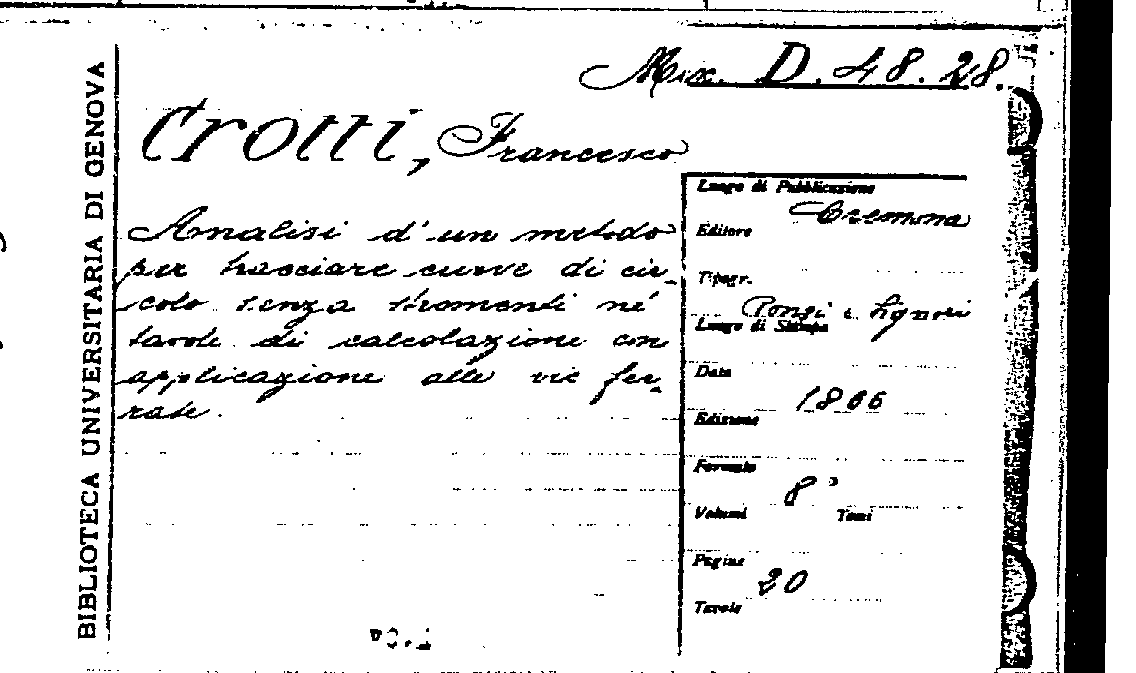 BIBLIOTECA UNIVERSITARIA DI GENOVA
Mix. D. 48. 28.
Crotti, Francesco
Analisi d'un metodo
per tracciare curve di cir-
colo senza stromenti né
tavole di calcolazione con
applicazione alle vie fer-
rate.
Luogo di Pubblicazione
Cremona
Editore
Tipogr.
Ronzi e Signori
Luogo di Stampa
Data
1866
Edizione
Formato
8°
Volumi Tomi
Pagine
20
Tavole